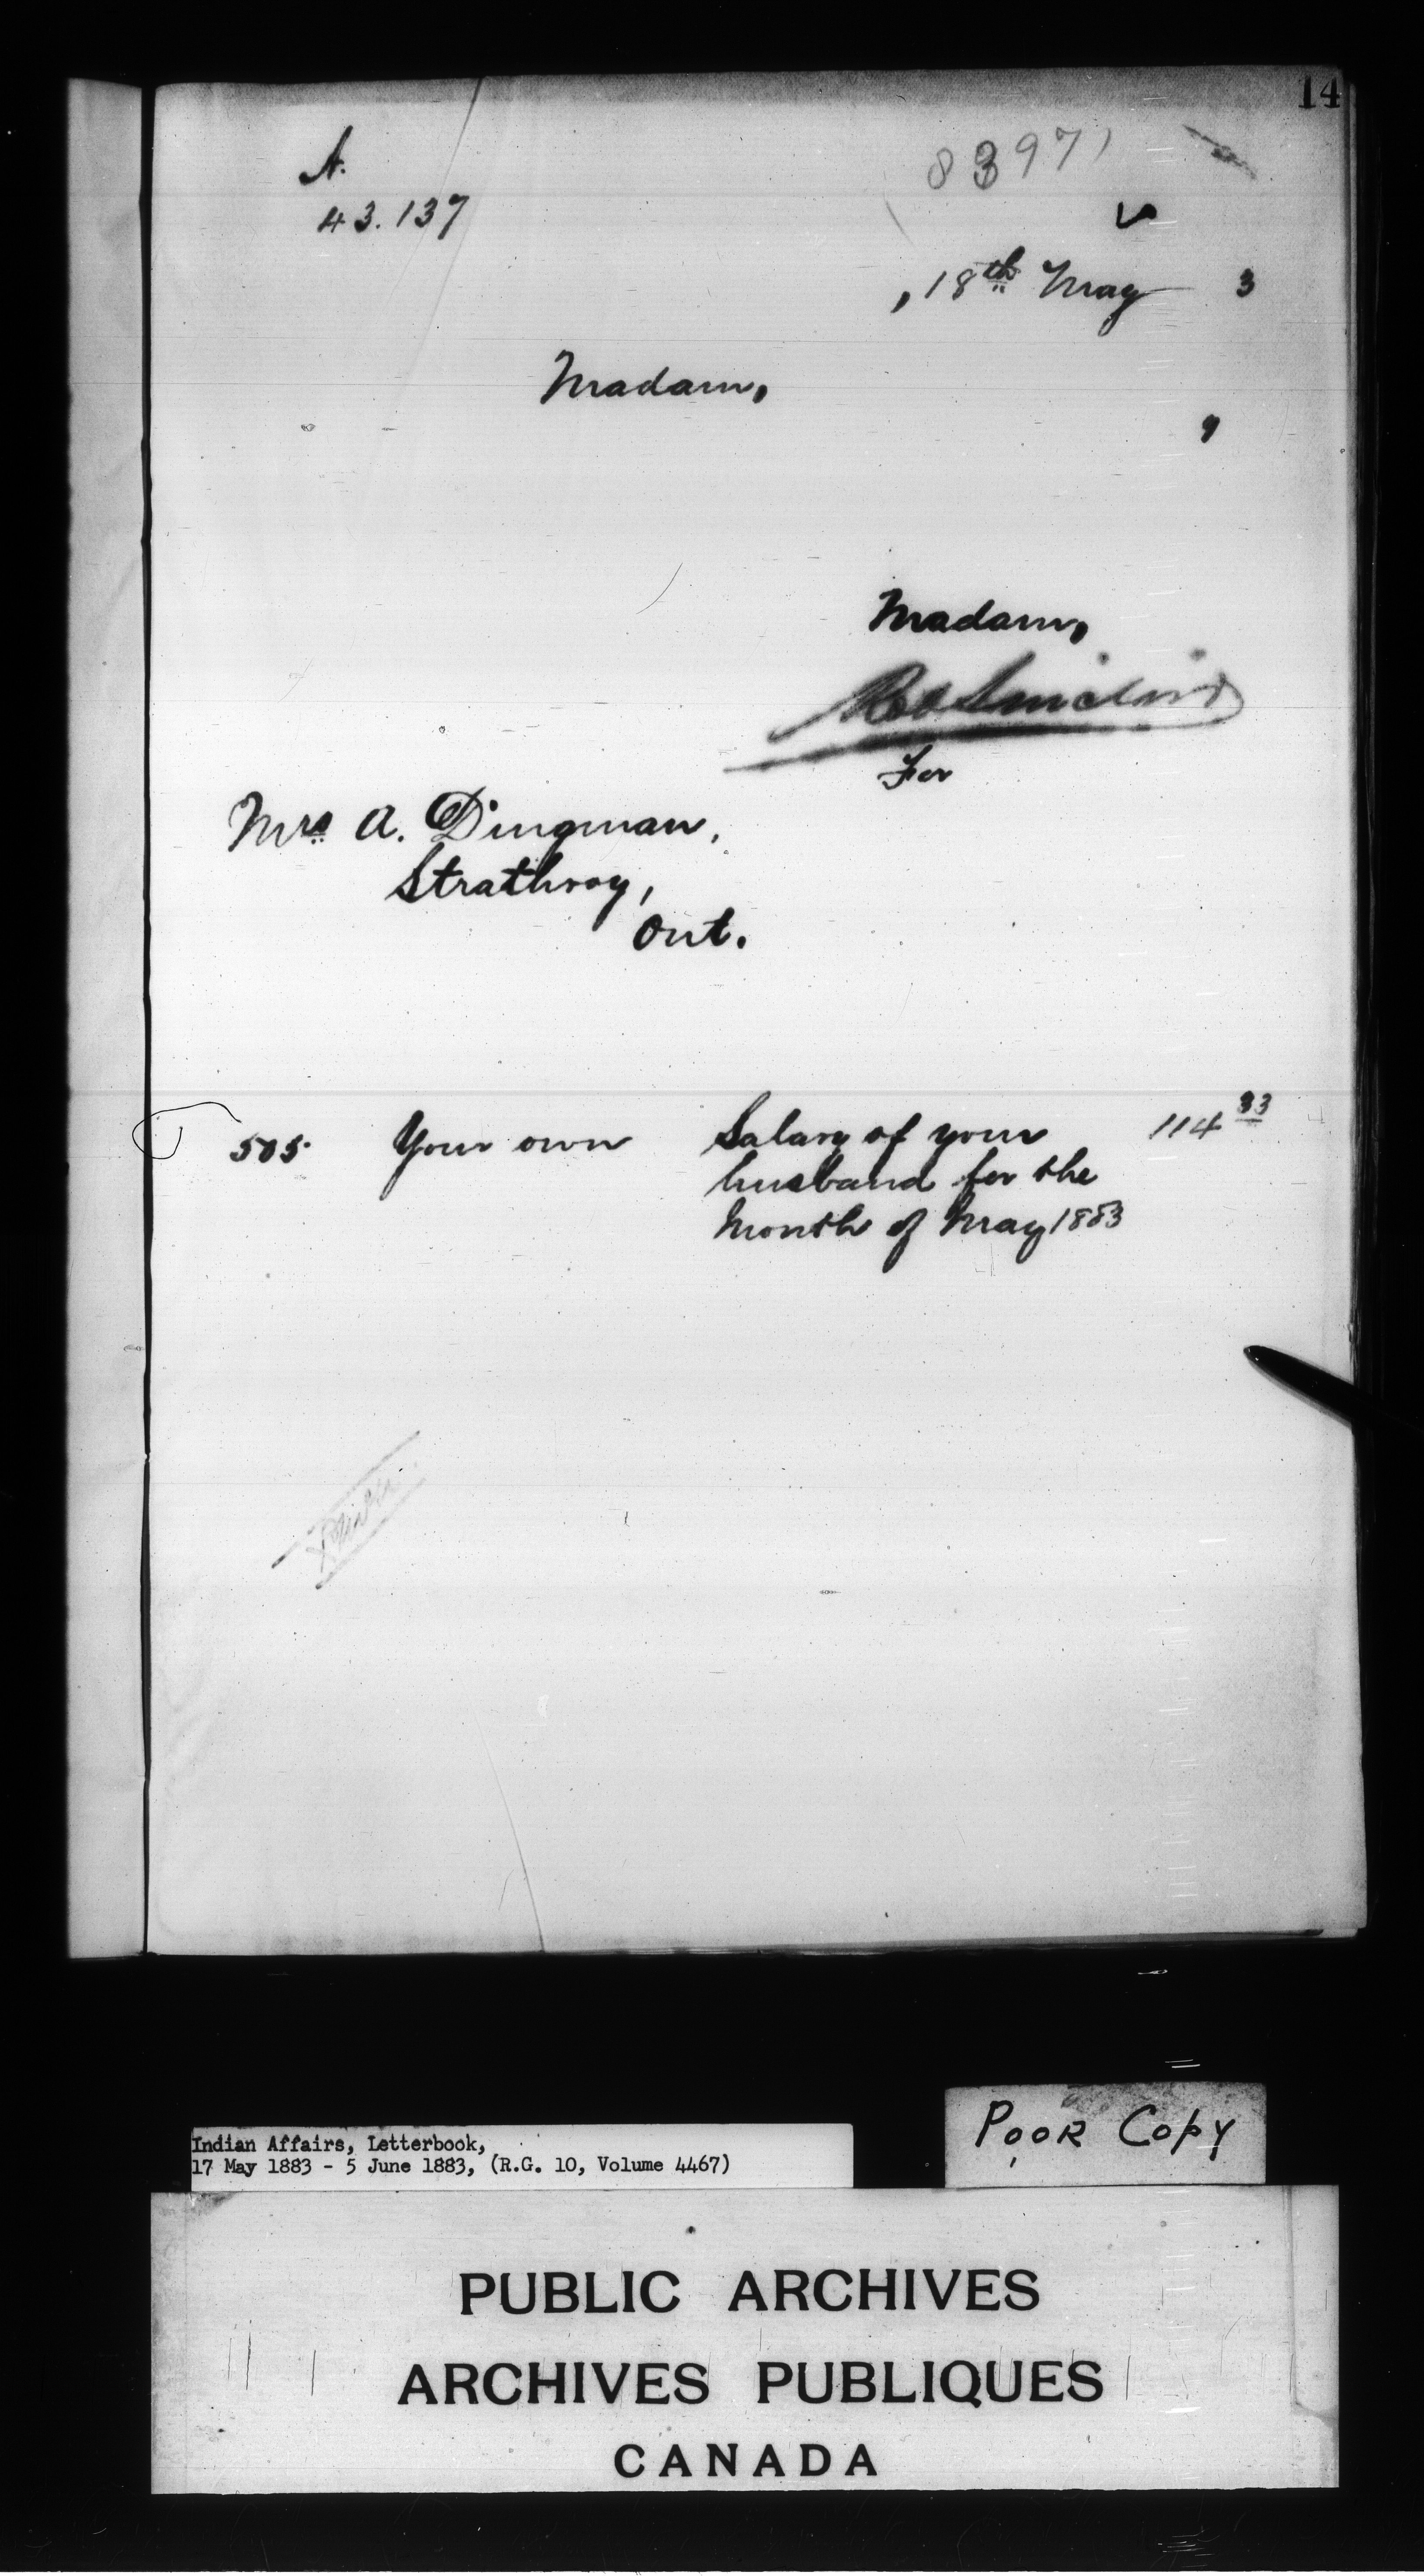 14
8397
A.
43.137
, 18th May 3
Madam,
9
Madam,
Rd Sinclair
For
Mrs A. Dingman,
Strathroy,
Ont.
505 Your own Salary of your 114 33
husband for the
Month of May 1883
Indian Affairs, Letterbook,
17 May 1883 - 5 June 1883, (R.G. 10, Volume 4467)
POOR COPY
PUBLIC ARCHIVES
ARCHIVES PUBLIQUES
CANADA